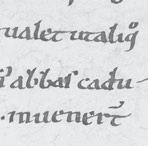 ualet utaliqꝰ
abbas cadu-
. inuenert̄